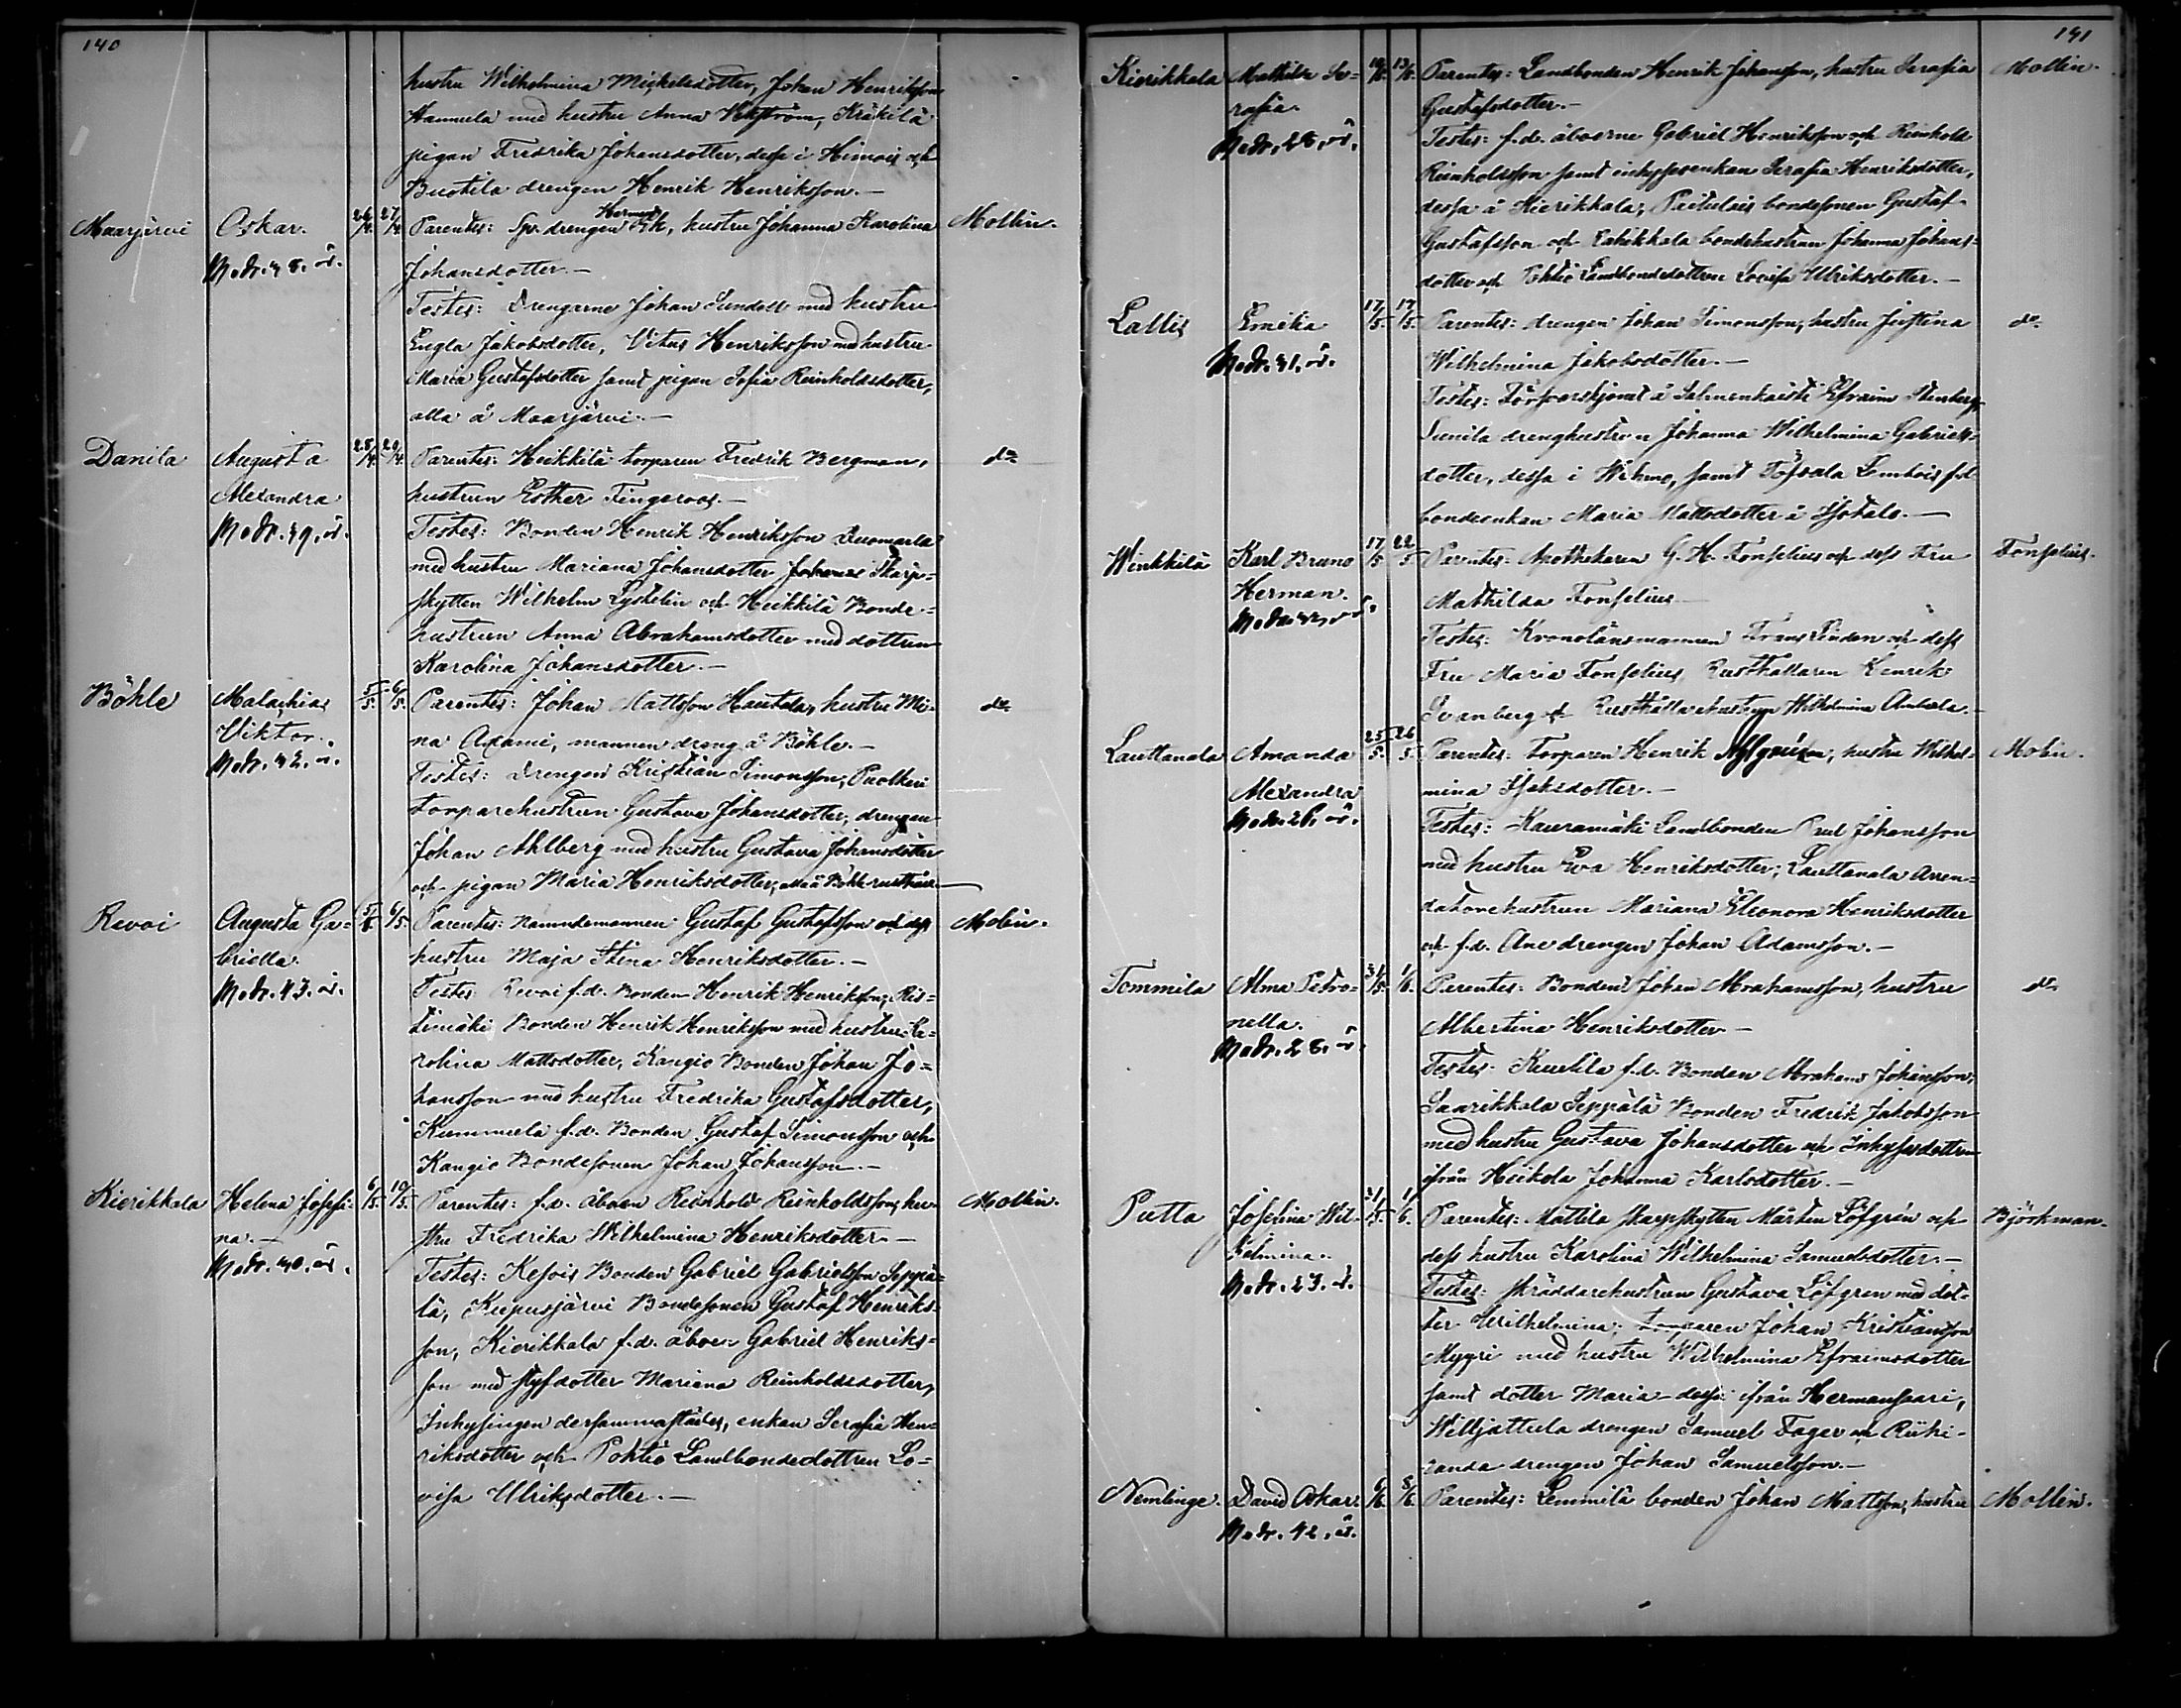 140
hustru Wilhelmina Michelsdotter, Johan Henriksson
Hannula med hustru Anna Wikström, Kräkilä
pigan Fredrika Johansdotter, desse i Himois och
Buotila drengen Henrik Henriksson.—
Maarjärvi Oskar. 26/4. 27/4. Parentes: Sp. drengen Herman Ek, hustru Johanna Karolina Mollin.
Modr. 48. år. Johansdotter.—
Testes: Drengarne Johan Sundell med hustru
Engla Jakobsdotter, Vitus Henriksson med hustru
Maria Gustafsdotter samt pigan Sofia Reinholdsdotter,
alla å Maarjärvi.—
Danila Augusta 28/4. 29/4. Parentes: Heikkilä torparen Fredrik Bergman, do
Alexandra hustrun Esther Fingeroos.—
Modr. 39. år. Testes: Bonden Henrik Henriksson Tuomarla
med hustru Mariana Johansdotter Skarp-
skytten Wilhelm Lystelin och Heikkilä Bonde-
hustrun Anna Abrahamsdotter med dottern
Karolina Johansdotter.—
Böhle Malachias 5/5. 6/5. Parentes: Johan Mattsson Hautala, hustru Mi- do
Viktor. na Adami, mannen dreng å Böhle.—
Modr. 42. år. Testes: Drengen Kristian Simonsson, Puolkeri
torparehustrun Gustava Johansdotter, drengen
Johan Ahlberg med hustru Gustava Johansdotter
och pigan Maria Henriksdotter, alla å Böhle rusthåll.—
Revoi Augusta Ga- 5/5. 6/5. Parentes: Nämndemannen Gustaf Gustafsson och dess Molin.
briella. hustru Maja Stina Henriksdotter.—
Modr. 43. år. Testes: Revoi f.d. Bonden Henrik Henriksson, Ris-
timäki Bonden Henrik Henriksson med hustru Ka-
rolina Mattsdotter, Kangio Bonden Johan Jo-
hansson med hustru Fredrika Gustafsdotter,
Kummula f.d. Bonden Gustaf Simonsson och
Kangio Bondesonen Johan Johansson.—
Kierikkala Helena Josefi- 6/5. 10/5. Parentes: f.d. åboen Reinhold Reinholdsson, hu- Mollin.
na.— stru Fredrika Wilhelmina Henriksdotter.—
Modr. 40. år. Testes: Kesois Bonden Gabriel Gabrielsson Seppä-
lä, Kupusjärvi Bondesonen Gustaf Henriks-
son, Kierikkala f.d. åboen Gabriel Henriks-
son med styfdotter Mariana Reinholdsdotter,
Inhysingen dersammastädes, enkan Serafia Hen-
riksdotter och Pohtio Landbondedottren Lo-
visa Ulriksdotter.—
141
Kierikkala Mathilda Se- 10/5. 13/5. Parentes: Landbonden Henrik Johansson, hustru Serafia Mollin.
rafia. Gustafsdotter.—
Modr. 28. år. Testes: f.d. åboerne Gabriel Henriksson och Reinhold
Reinholdsson samt inhysesenkan Serafia Henriksdotter,
dessa å Kierikkala, Paitulais bondesonen Gustaf
Gustafsson och Lahikkala bondehustrun Johanna Johans-
dotter och Pohtio Landbondedottren Lovisa Ulriksdotter.—
Lallis Emilia 17/5. 17/5. Parentes: drengen Johan Simonsson, hustru Justina do
Modr. 41. år. Wilhelmina Jakobsdotter.—
Testes: Efraim Stenberg,
Sunila drenghustrun Johanna Wilhelmina Gabriels-
dotter, dessa i Wehmo, samt Töfsala Lembois f.d.
bondeenkan Maria Mattsdotter å Isotalo.—
Winkkilä Karl Bruno 17/5 22/5. Parentes: Apothekaren G. H. Fonselius och dess Fru Fonselius.
Herman. Mathilda Fonselius
Modr. 42. år. Testes: Kronolänsmannen Frans Linden och dess
Fru Maria Fonselius, Rusthållaren Henrik
Svanberg och Rusthållarehustrun Wilhelmina Anhala.
Lauttanala Amanda 25/5. 26/5. Parentes: Torparen Henrik Ahlqvist, hustru Wilhel- Molin.
Alexandra mina Isaksdotter.—
Modr. 26. år. Testes: Kauramäki Landbonden Paul Johansson
med hustru Eva Henriksdotter, Lauttanala Arren-
datorehustrun Mariana Eleonora Henriksdotter
och f.d. Ane drengen Johan Adamsson.—
Tommila Alma Petro- 31/5. 1/6. Parentes: Bonden Johan Abrahamsson, hustru do
nella. Albertina Henriksdotter—
Modr. 28. år. Testes: Kuulila f.d. Bonden Abraham Johansson,
Saarikkala Seppälä Bonden Fredrik Jakobsson
med hustru Gustava Johansdotter och Inhysesdottren
ifrån Heikola Johanna Karlsdotter.—
Putta Josefina Wil- 31/5. 1/6. Parentes: Mattila skarpskytten Mårten Löfgrén och Björkman.
helmina. dess hustru Karolina Wilhelmina Samuelsdotter.—
Modr. 23. år. Testes: Skräddarehustrun Gustava Löfgren med dot-
ter Wilhelmina, Torparen Johan Kristiansson
Myyri med hustru Wilhelmina Efraimsdotter
samt dotter Maria dessa ifrån Hermansaari,
Willjattula drengen Samuel Fager och Riihi-
randa drengen Johan Samuelsson.—
Nemlinge. David Oskar. 6/6. 8/6. Parentes: Lemmilä bonden Johan Mattsson, hustru Mollin.
Modr. 42. år.